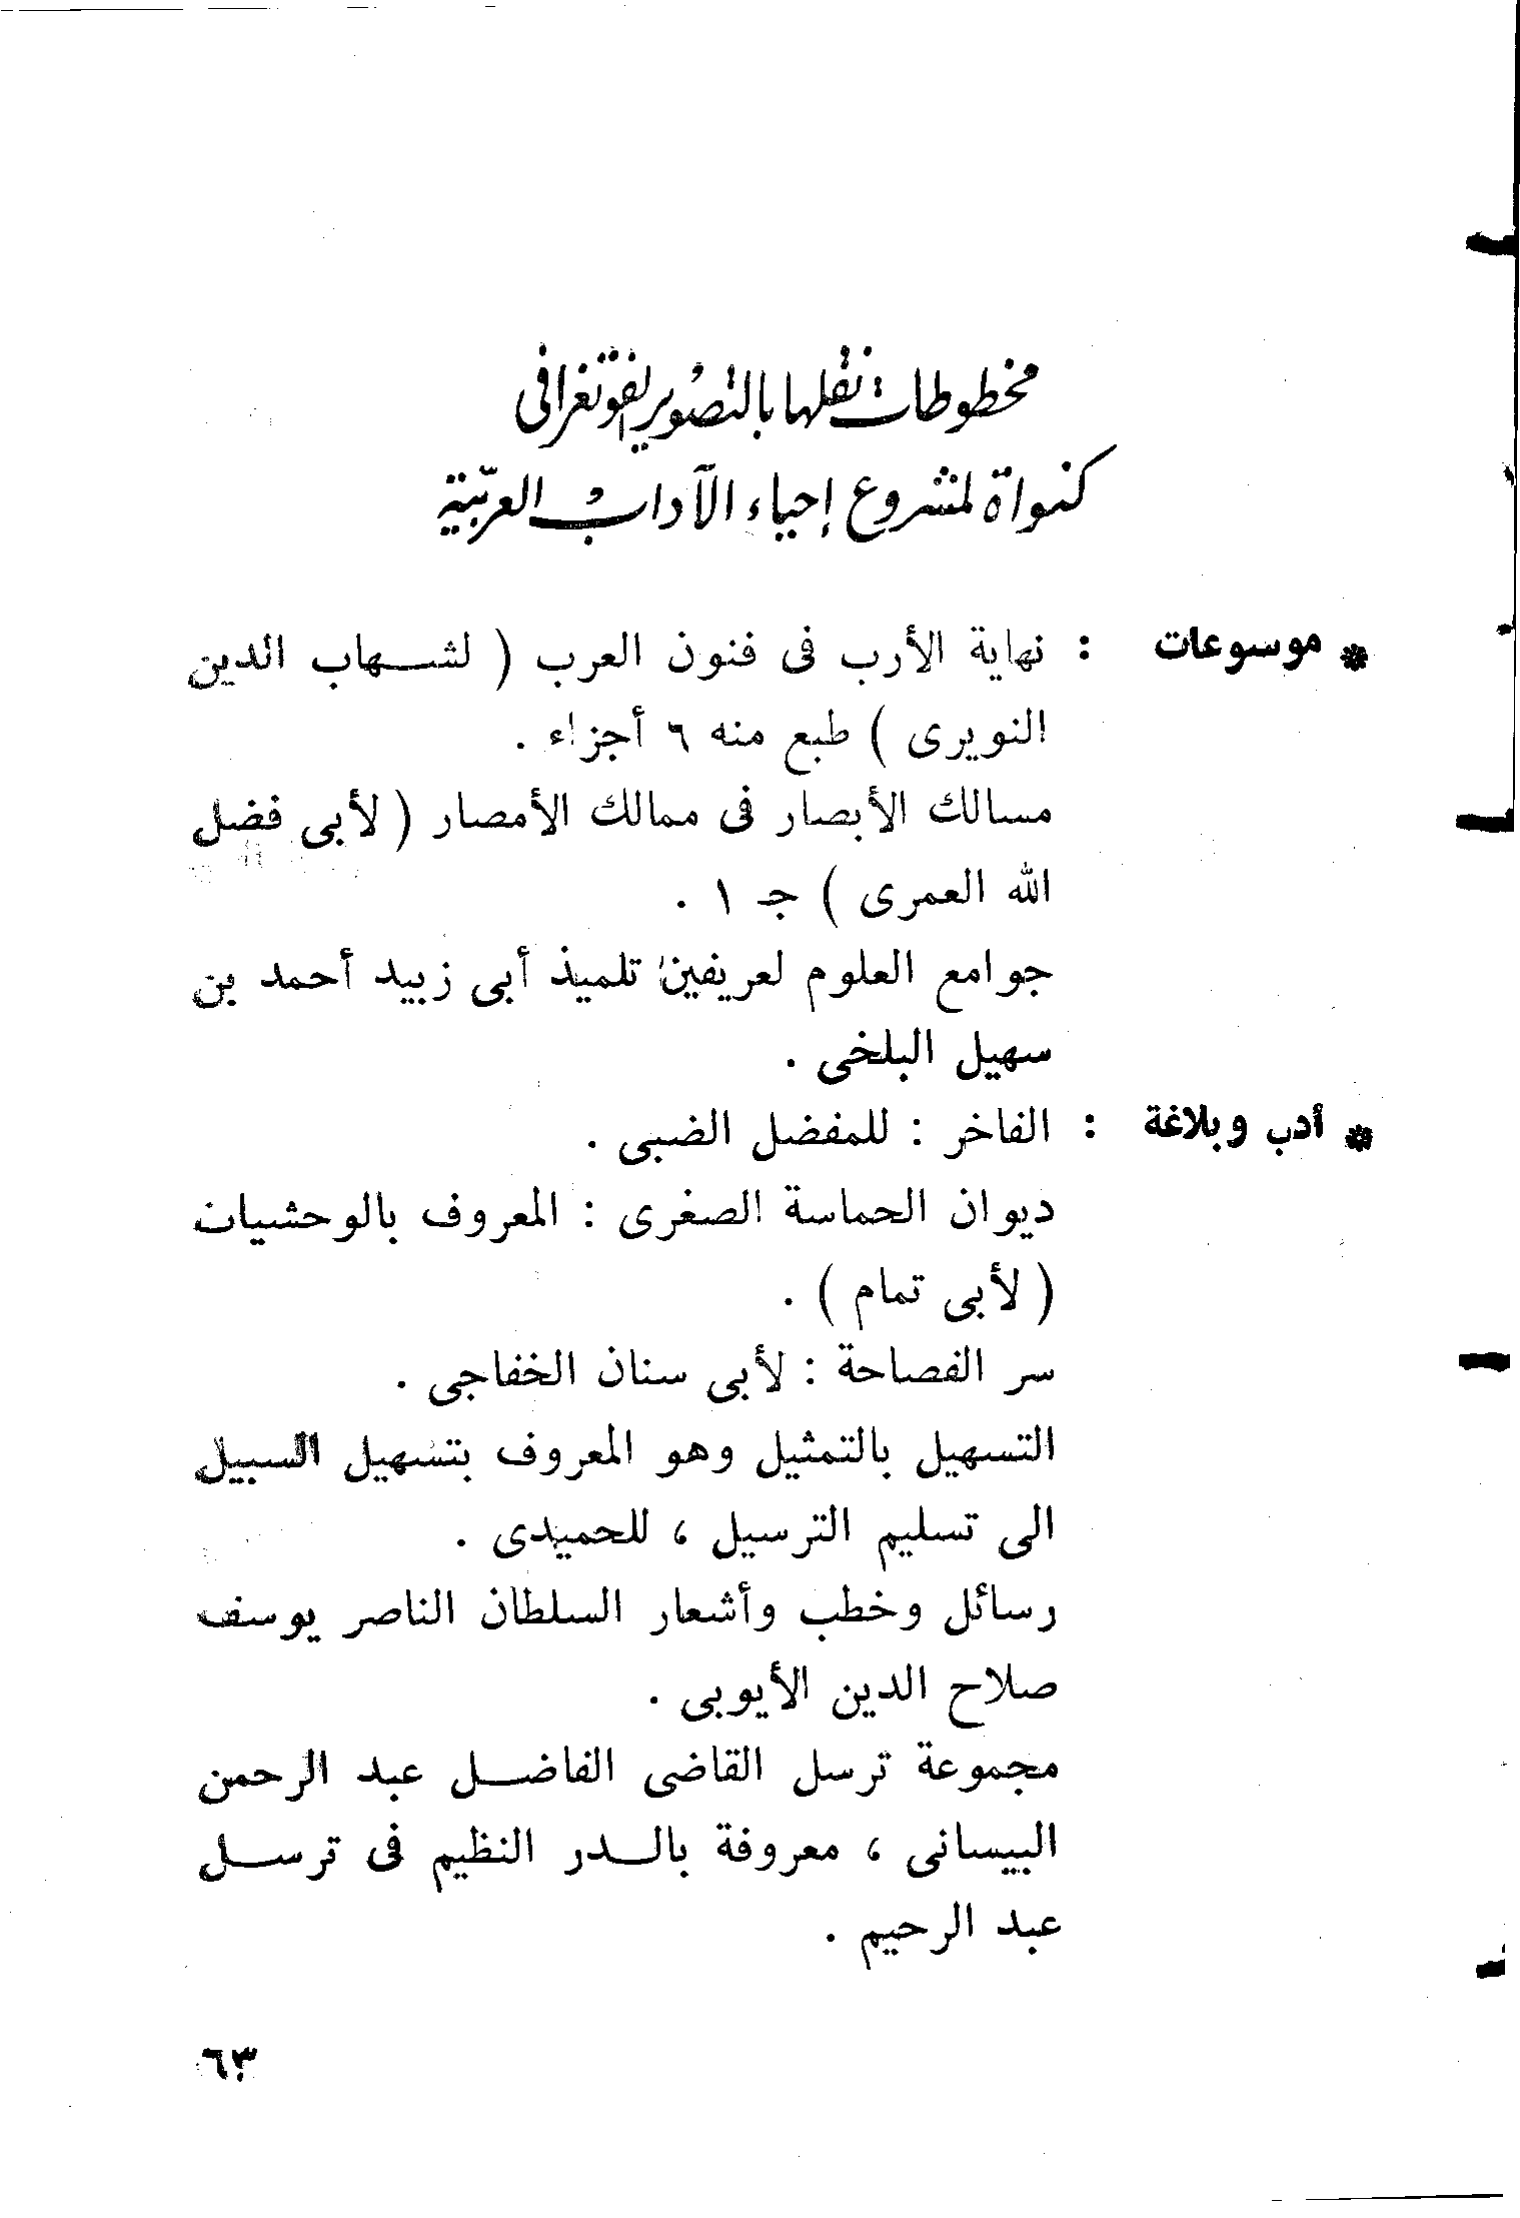 مخطوطات نقلها بالتصوير الفوتغرافى
كنواة لمشروع إحياء الآداب العربية
* موسوعات : نهاية الأرب فى فنون العرب ( لشهاب الدين
النويرى ) طبع منه ٦ أجزاء .
مسالك الأبصار فى ممالك الأمصار ( لأبى فضل
الله العمرى ) جـ ١ .
جوامع العلوم لعريفين تلميذ أبى زبيد أحمد بن
سهيل البلخى .
* أدب وبلاغة : الفاخر : للمفضل الضبى .
ديوان الحماسة الصغرى : المعروف بالوحشيات
( لأبى تمام ) .
سر الفصاحة : لأبى سنان الخفاجى .
التسهيل بالتمثيل وهو المعروف بتسهيل السبيل
الى تسليم الترسيل ، للحميدى .
رسائل وخطب وأشعار السلطان الناصر يوسف
صلاح الدين الأيوبى .
مجموعة ترسل القاضى الفاضل عبد الرحمن
البيسانى ، معروفة بالدر النظيم فى ترسل
عبد الرحيم .
٦٣